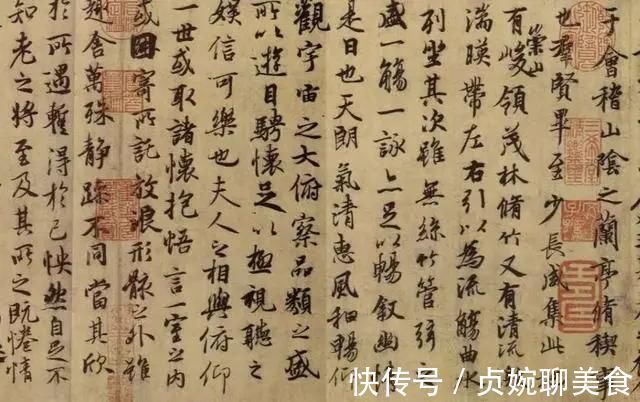 于會稽山陰之蘭亭脩稧事
也羣賢畢至少長咸集此地
有崇山峻領茂林脩竹又有清流激
湍暎帶左右引以為流觴曲水
列坐其次雖無絲竹管弦之
盛一觴一詠亦足以暢叙幽情
是日也天朗氣清惠風和暢仰
觀宇宙之大俯察品類之盛
所以遊目騁懷足以極視聽之
娛信可樂也夫人之相與俯仰
一世或取諸懷抱悟言一室之內
或因寄所託放浪形骸之外雖
趣舍萬殊靜躁不同當其欣
於所遇暫得於己怏然自足不
知老之將至及其所之既惓情
快传号 / 贞婉聊美食